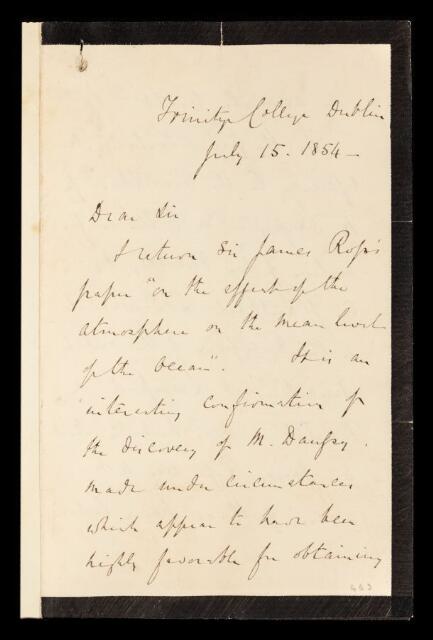 Trinity College Dublin
July 15. 1854 -
Dear Sir
I return Sir James Ross's
paper "on the effect of the
atmosphere on the mean level
of the Ocean". It is an
interesting confirmation of
the discovery of M. Daussy.
made under circumstances
which appear to have been
highly favorable for obtaining